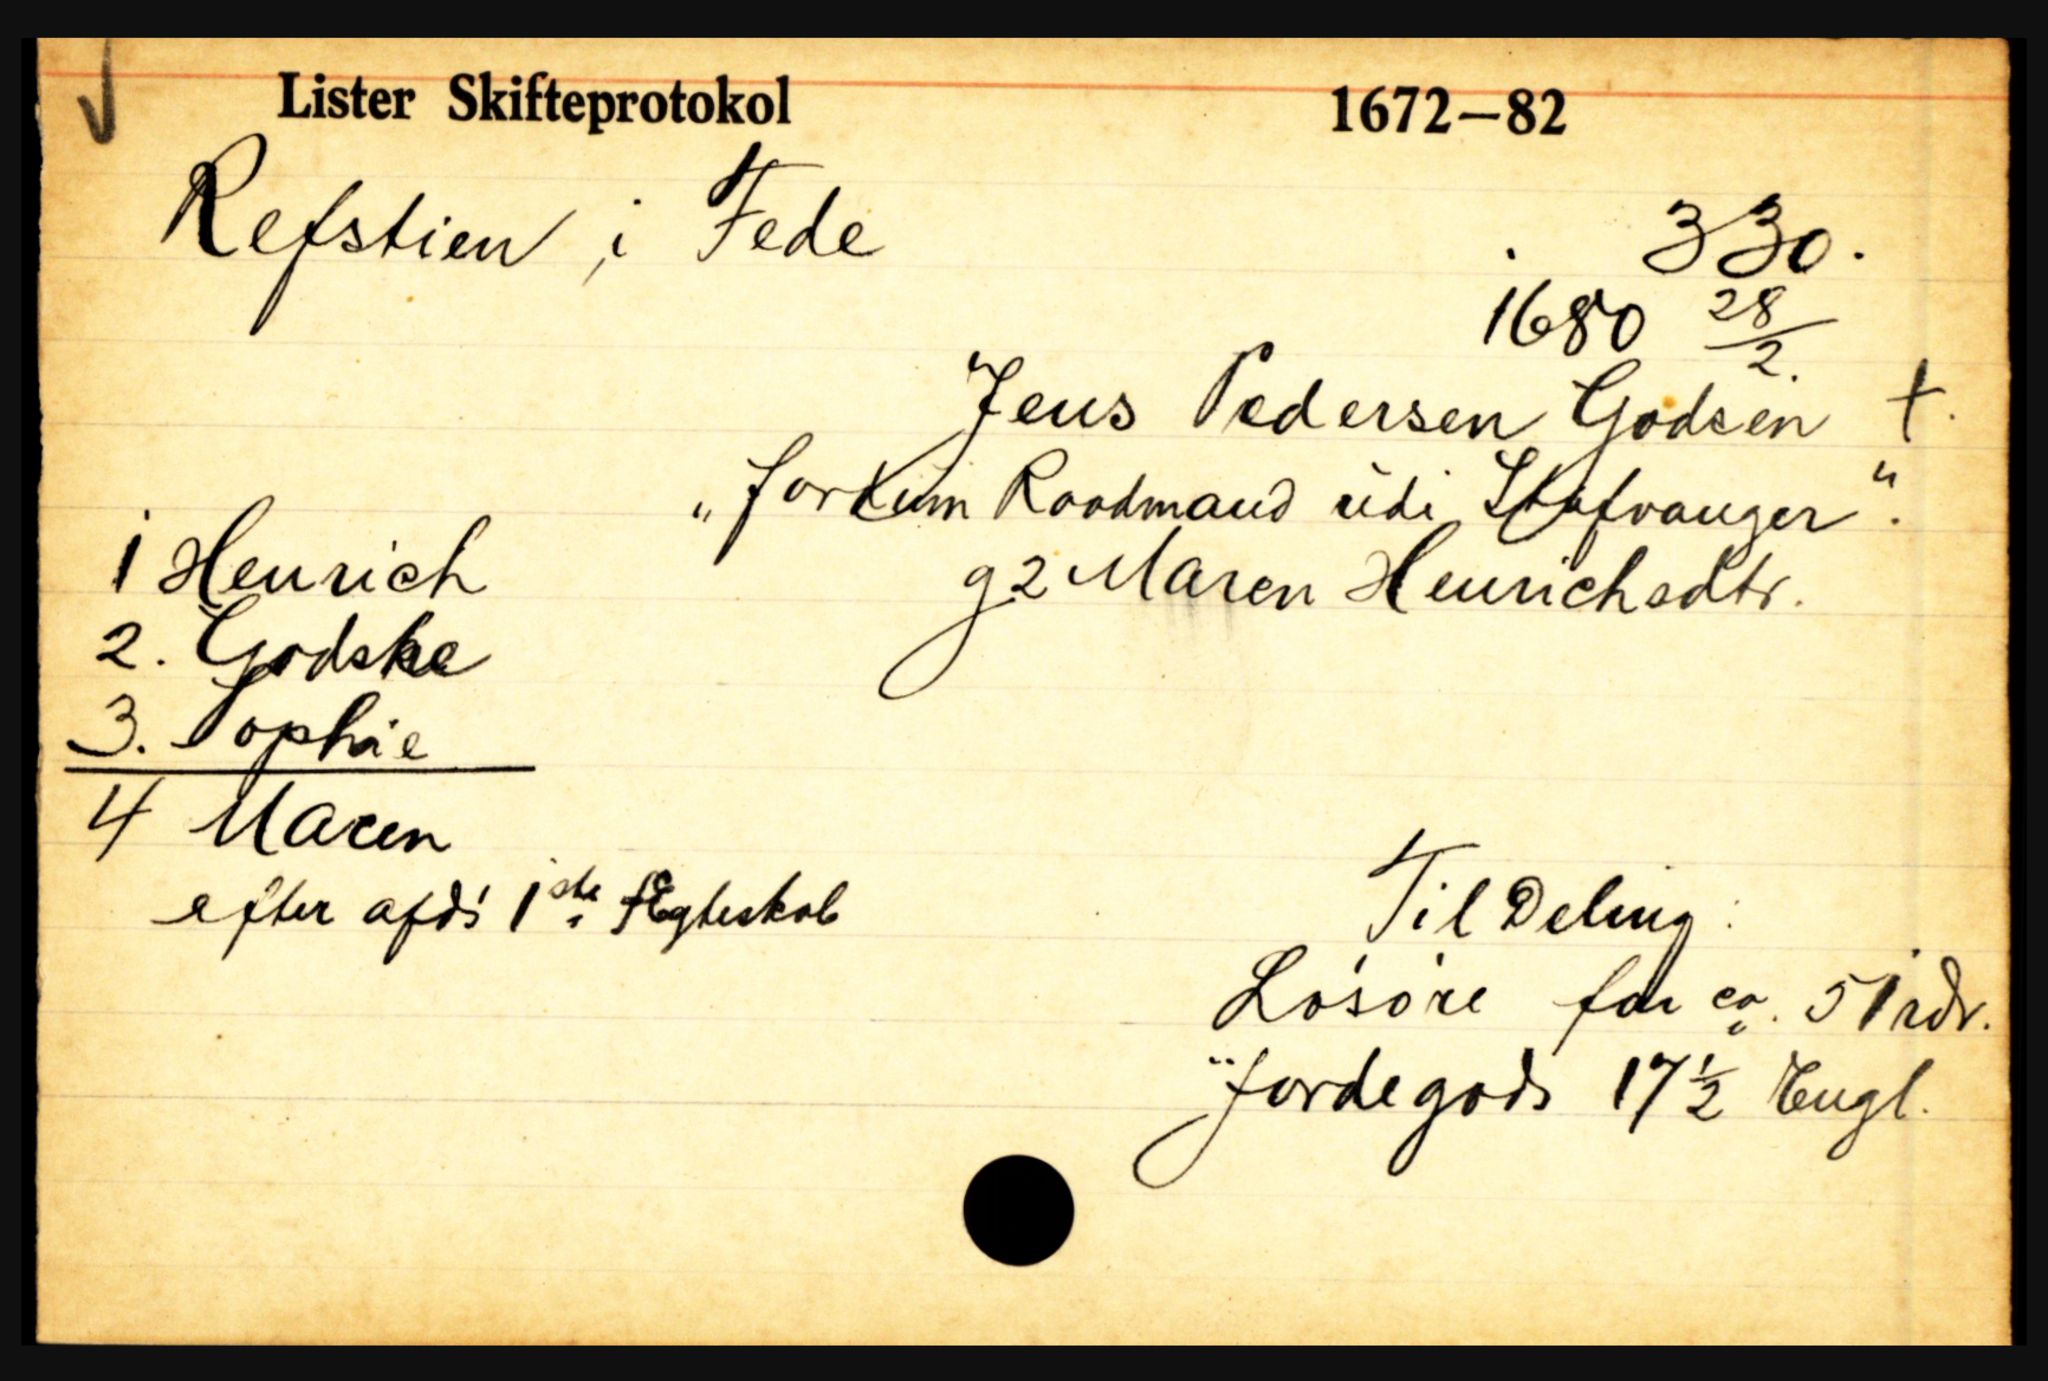 Lister Skifteprotokol 1672—82
Refstien, i Fede
330.
1680 28/2.
Jens Pedersen Godsen †.
„forKum Raadmand udi Stafvanger“.
g 2 Maren Henrichsdtr.
1 Henrich
2. Godske
3. Sophie
4 Maren
efter afdś 1ste Ægteskab
Til Deling:
Lösöre for ca. 51 rdr.
Jordegods 17 1/2 Engl.